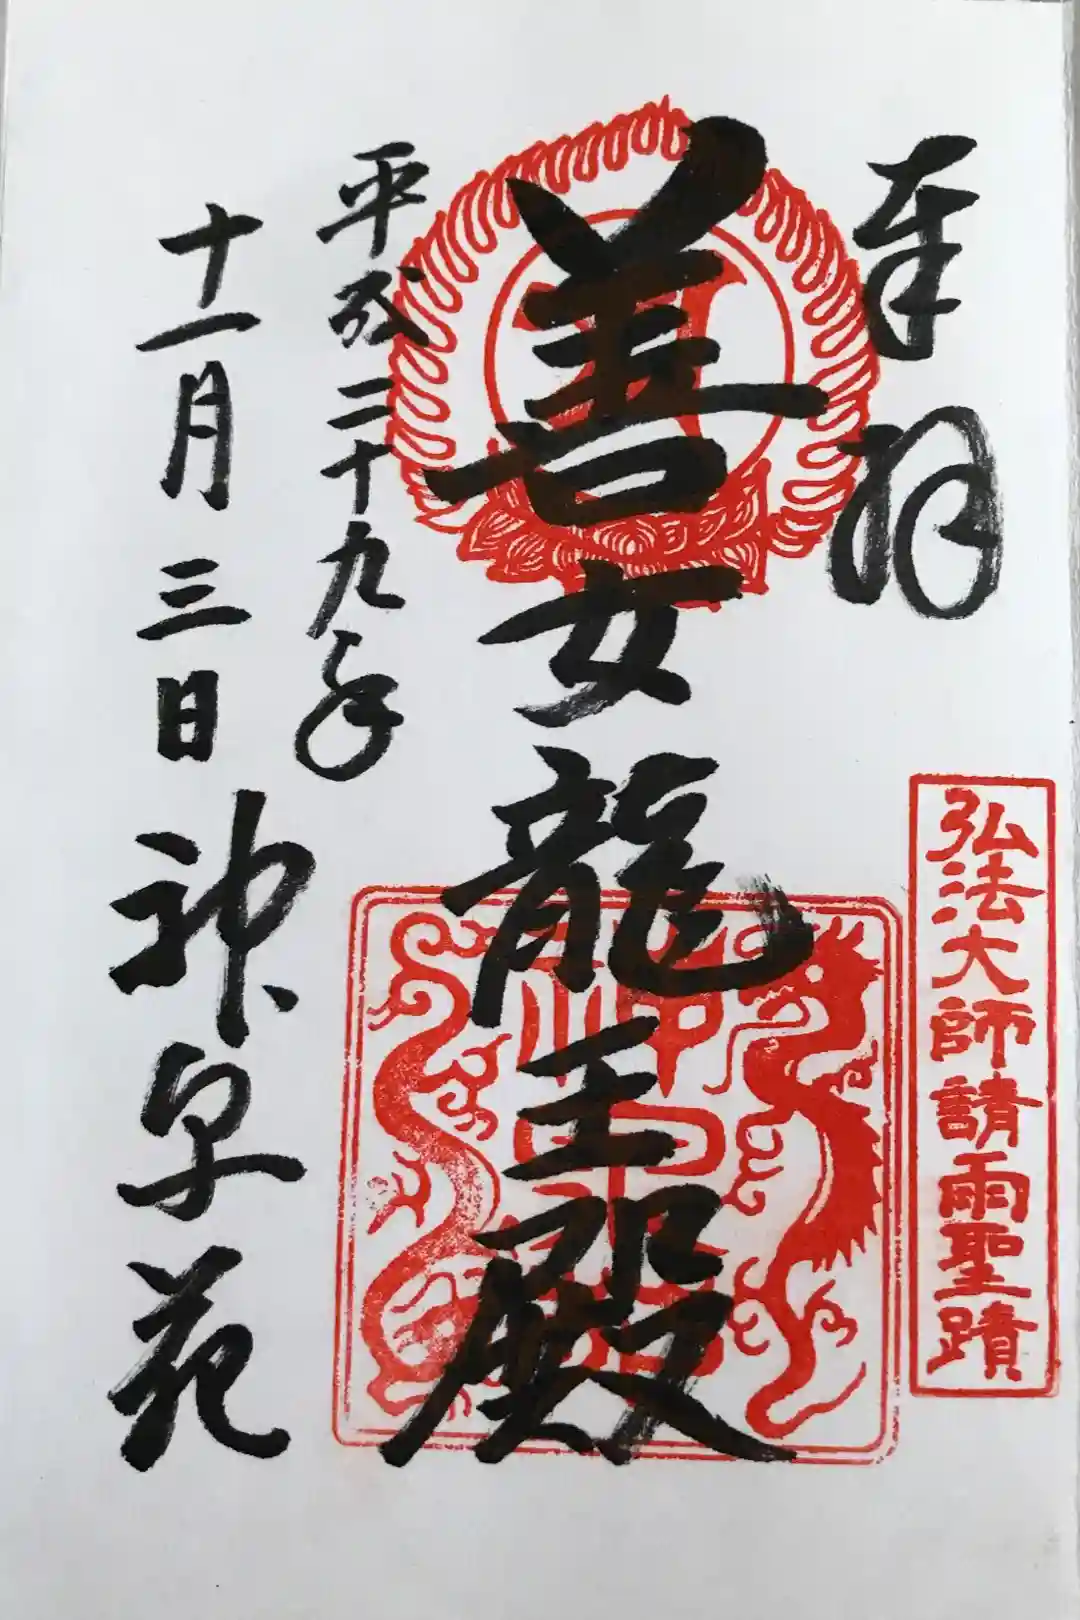 奉拝
弘法大師請雨聖蹟
善女龍王殿
平成二十九年
十一月三日
神泉苑